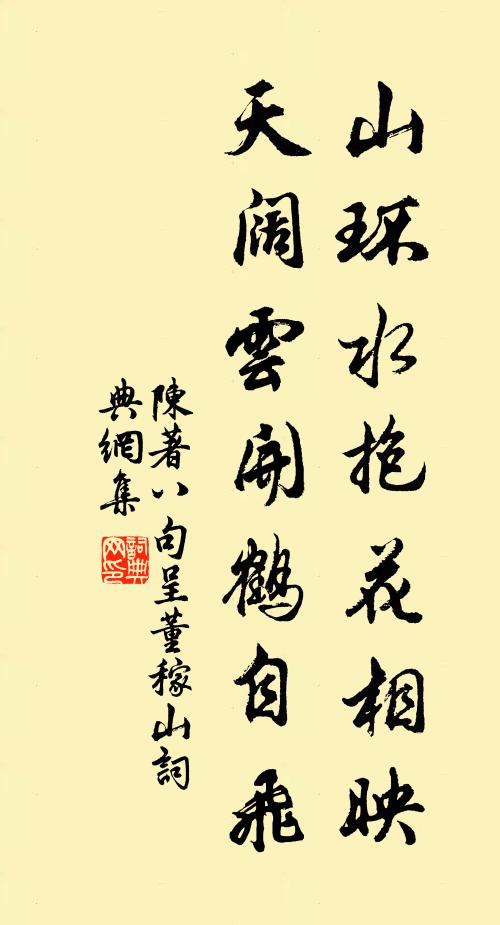 山环水抱花相映
天阔雲開鹤自飛
陳著八句呈董稼山詞
典網集
詞典
网印